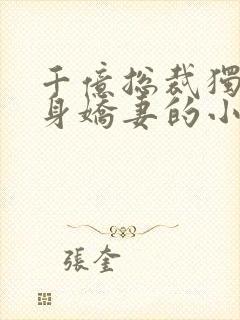 千億總裁獨
身嬌妻的小
張奎